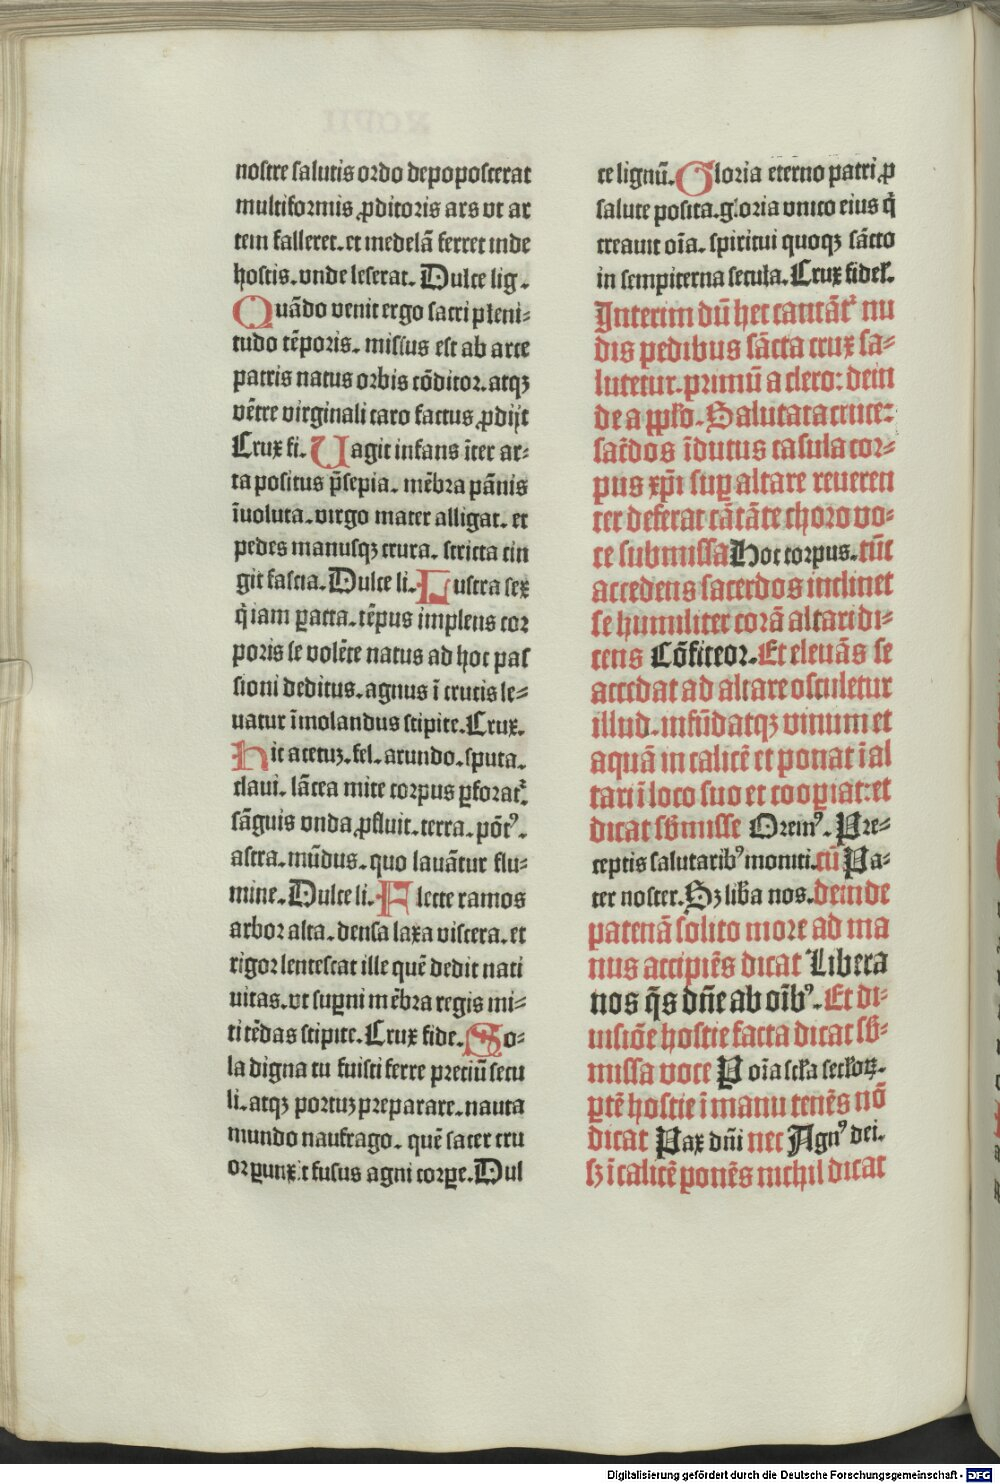 nostre salutis ordo depoposcerat
multiformis ꝓditoris ars vt ar
tem falleret. et medelā ferret inde
hostis. vnde leserat. Dulce lig.
Quādo venit ergo sacri pleni⸗
tudo tēporis. missus est ab arce
patris natus orbis cōditor. atqꝫ
vētre virginali caro factus ꝓdijt
Crux fi. Uagit infans īter ar⸗
ta positus p̄sepia. mēbra pānis
īuoluta. virgo mater alligat. et
pedes manusqꝫ crura. stricta cin
git fascia. Dulce li. Lustra sex
q̄ iam ꝑacta. tēpus implens cor
poris se volēte natus ad hoc pas
sioni deditus. agnus ī crucis le⸗
uatur īmolandus stipite. Crux.
Hic acetuꝫ. fel. arundo. sputa.
claui. lācea mite corpus ꝑforatᷣ.
sāguis vnda ꝓfluit. terra. pōtꝰ.
astra. mūdus. quo lauātur flu⸗
mine. Dulce li. Flecte ramos
arbor alta. densa laxa viscera. et
rigor lentescat ille quē dedit nati
uitas. vt suꝑni mēbra regis mi⸗
ti tēdas stipite. Crux fide. So⸗
la digna tu fuisti ferre preciū secu
li. atqꝫ portuꝫ preparare. nauta
mundo naufrago. quē sacer cru
or ꝑunxit fusus agni corꝑe. Dul
ce lignū. Gloria eterno patri ꝓ
salute posita. gloria vnico eius q̄
creauit oīa. spiritui quoqꝫ sācto
in sempiterna secula. Crux fidel̄.
Interim dū hec cantāt᷑ nu
dis pedibus sācta crux sa⸗
lutetur. primū a clero: dein
de a pp̄lo. Salutata cruce:
sac̄dos īdutus casula cor⸗
pus xp̄i suꝑ altare reueren
ter deferat cātāte choro vo⸗
ce submissa Hoc corpus. tūc
accedens sacerdos inclinet
se humiliter corā altari di⸗
cens Cōfiteor. Et eleuās se
accedat ad altare osculetur
illud. infūdatqꝫ vinum et
aquā in calicē et ponat ī al
tari ī loco suo et cooꝑiat: et
dicat sb̄misse Oremꝰ. Pre⸗
ceptis salutaribꝰ moniti. cū Pa⸗
ter noster. Sꝫ lib̄a nos. deinde
patenā solito more ad ma
nus accipiēs dicat Libera
nos q̄s dn̄e ab oībꝰ. Et di⸗
uisiōe hostie facta dicat sb̄⸗
missa voce P oīa sc̄la sec̄loꝝ.
ꝑtē hostie ī manu tenēs nō
dicat Pax dn̄i nec Agnꝰ dei.
sꝫ ī calicē ponēs nichil dicat
Digitalisierung gefördert durch die Deutsche Forschungsgemeinschaft - DFG